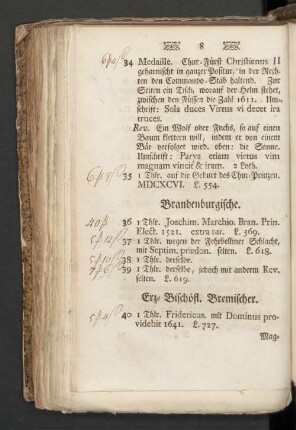 8
34 Medaille. Chur-Fürst Christianus II
geharnischt in ganzer Positur, in der Rech-
ten den Commando-Stab haltend. Zur
Seiten ein Tisch, worauf der Helm stehet,
zwischen den Füssen die Zahl 1612. Um-
schrift: Sola duces Virtus vi decet ira
truces.
Rev. Ein Wolf oder Fuchs, so auf einen
Baum klettern will, indem er von einem
Bär verfolget wird. oben: die Sonne.
Umschrift: Parva etiam virtus vim
magnam vincit & iram. 2 Loth.
35 1 Thlr. auf die Geburt des Chur-Prinzen.
MDCXCVI. L. 554.
Brandenburgische.
36 1 Thlr. Joachim. Marchio. Bran. Prin.
Elect. 1521. extra rar. L. 569.
37 1 Thlr. wegen der Fehrbelliner Schlacht,
mit Septim. prydon. selten. L. 618.
38 1 Thlr. derselbe.
39 1 Thlr. derselbe, jedoch mit anderm Rev.
selten. L. 619.
Erz-Bischöfl. Bremischer.
40 1 Thlr. Fridericus. mit Dominus pro-
videbit 1641. L. 727.
Mag-